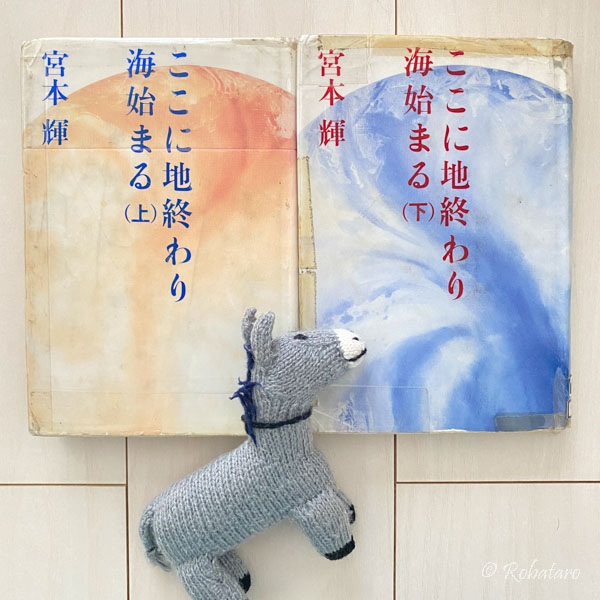 ここに地終わり
海始まる(上)
宮本輝
ここに地終わり
海始まる(下)
宮本輝
© Robataro